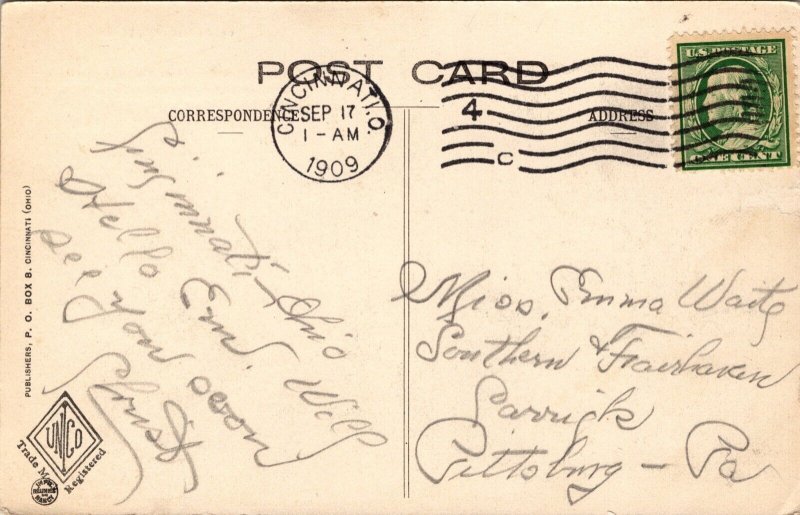 POST CARD
CORRESPONDENCE
ADDRESS
CINCINNATI. O.
SEP 17
1-AM
1909
4
C
U.S. POSTAGE
ONE CENT
Cincinnati, Ohio
Hello Em, will
see you soon
Miss. Emma Waitz
Southern & Fairhaven
Carrick
Pittsburg - Pa
PUBLISHERS, P. O. BOX 8. CINCINNATI (OHIO)
UNCO
Trade Mark
Registered